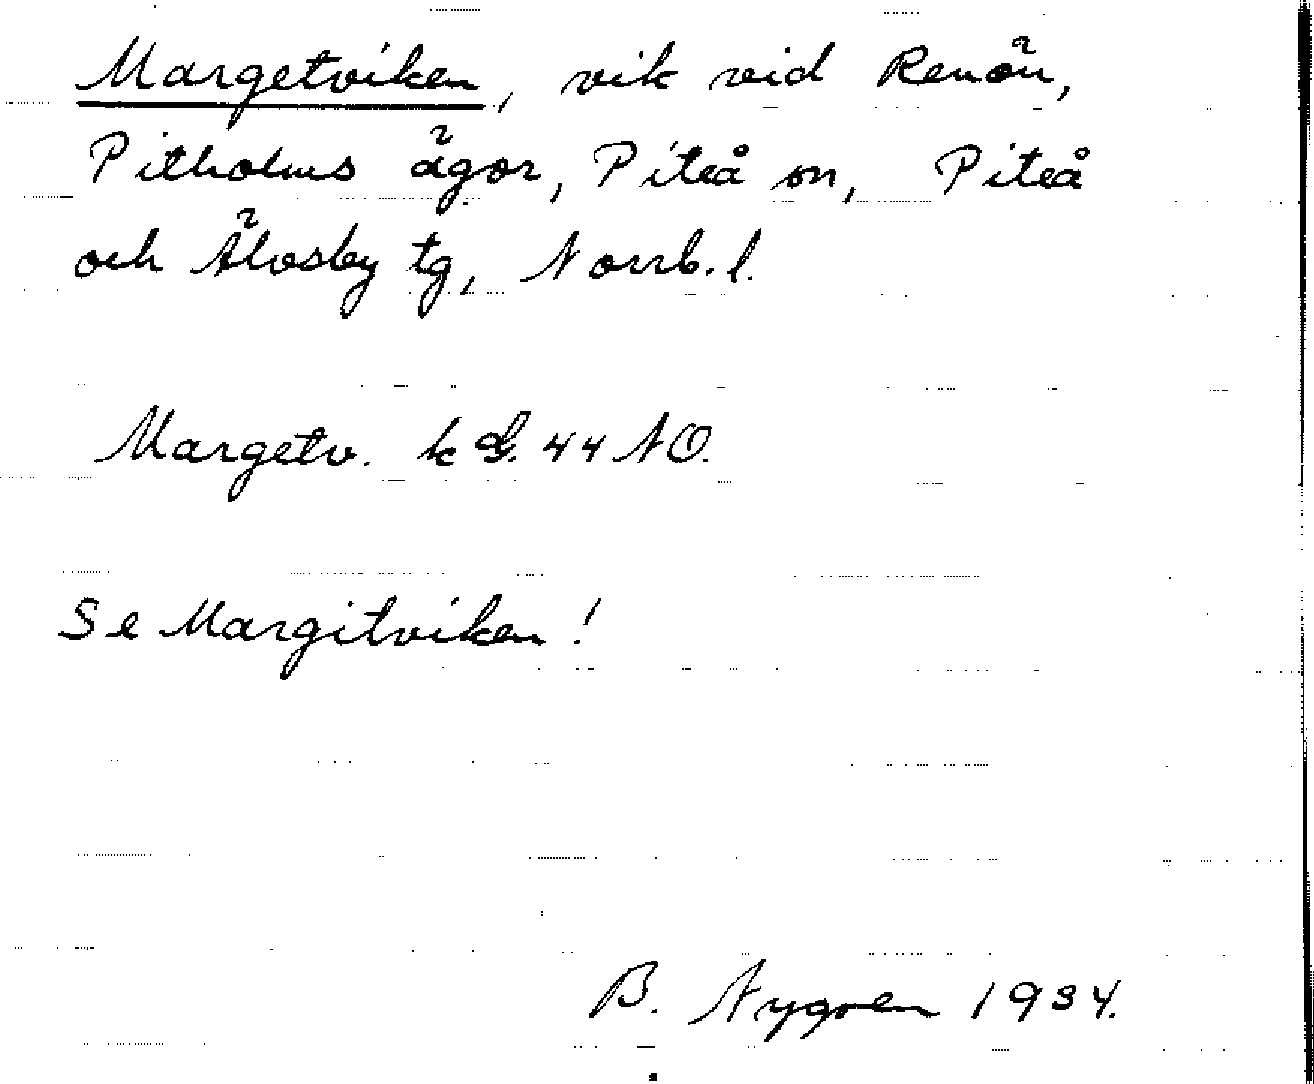 Margetviken, vik vid Renön,
Pitholms ägor, Piteå sn, Piteå
och Älvsby tg, Norrb. l.
Margetv. k G. 44 NO.
Se Margitviken!
B. Nygren 1934.